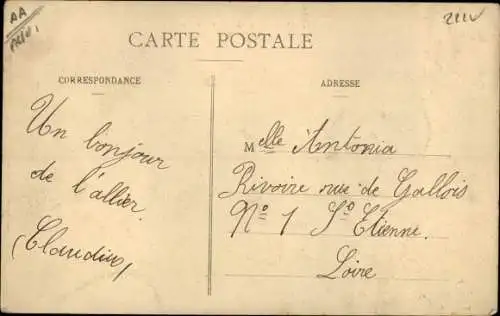 AA
CARTE POSTALE
CORRESPONDANCE
Un bonjour
de l'allier.
(Claudius)
ADRESSE
Melle Antonia
Rivoire rue de Gallois
No 1 St Etienne.
Loire